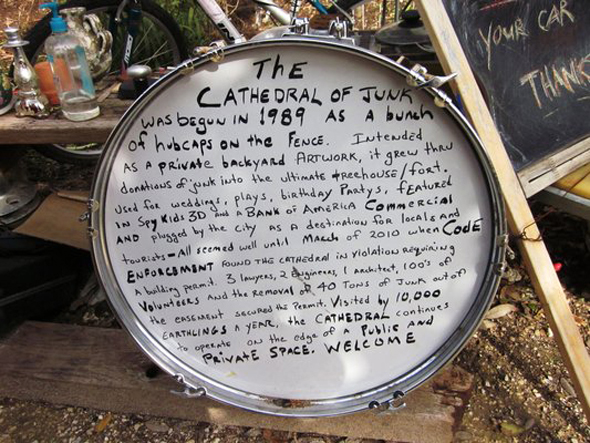 The
CATHEDRAL OF JUNK
was begun in 1989 AS A bunch
of hubcaps on the Fence. Intended
AS A private backyard ARTWORK, it grew thru
donations of junk into the ultimate treehouse/fort.
Used for weddings, plays, birthday Partys, featured
in Spy Kids 3D and a BANK of AMERICA Commercial
AND plugged by the city as a destination for locals and
tourists - All seemed well until March of 2010 when CODE
ENFORCEMENT found the cathedral in violation requiring
A building permit. 3 lawyers, 2 engineers, 1 architect, 100's of
Volunteers and the removal of 40 Tons of junk out of
the easement secured the Permit. Visited by 10,000
EARTHLINGS A YEAR, the CATHEDRAL continues
to operate on the edge of a Public and
Private SPACE. WELCOME
YOUR CAR
THANKS